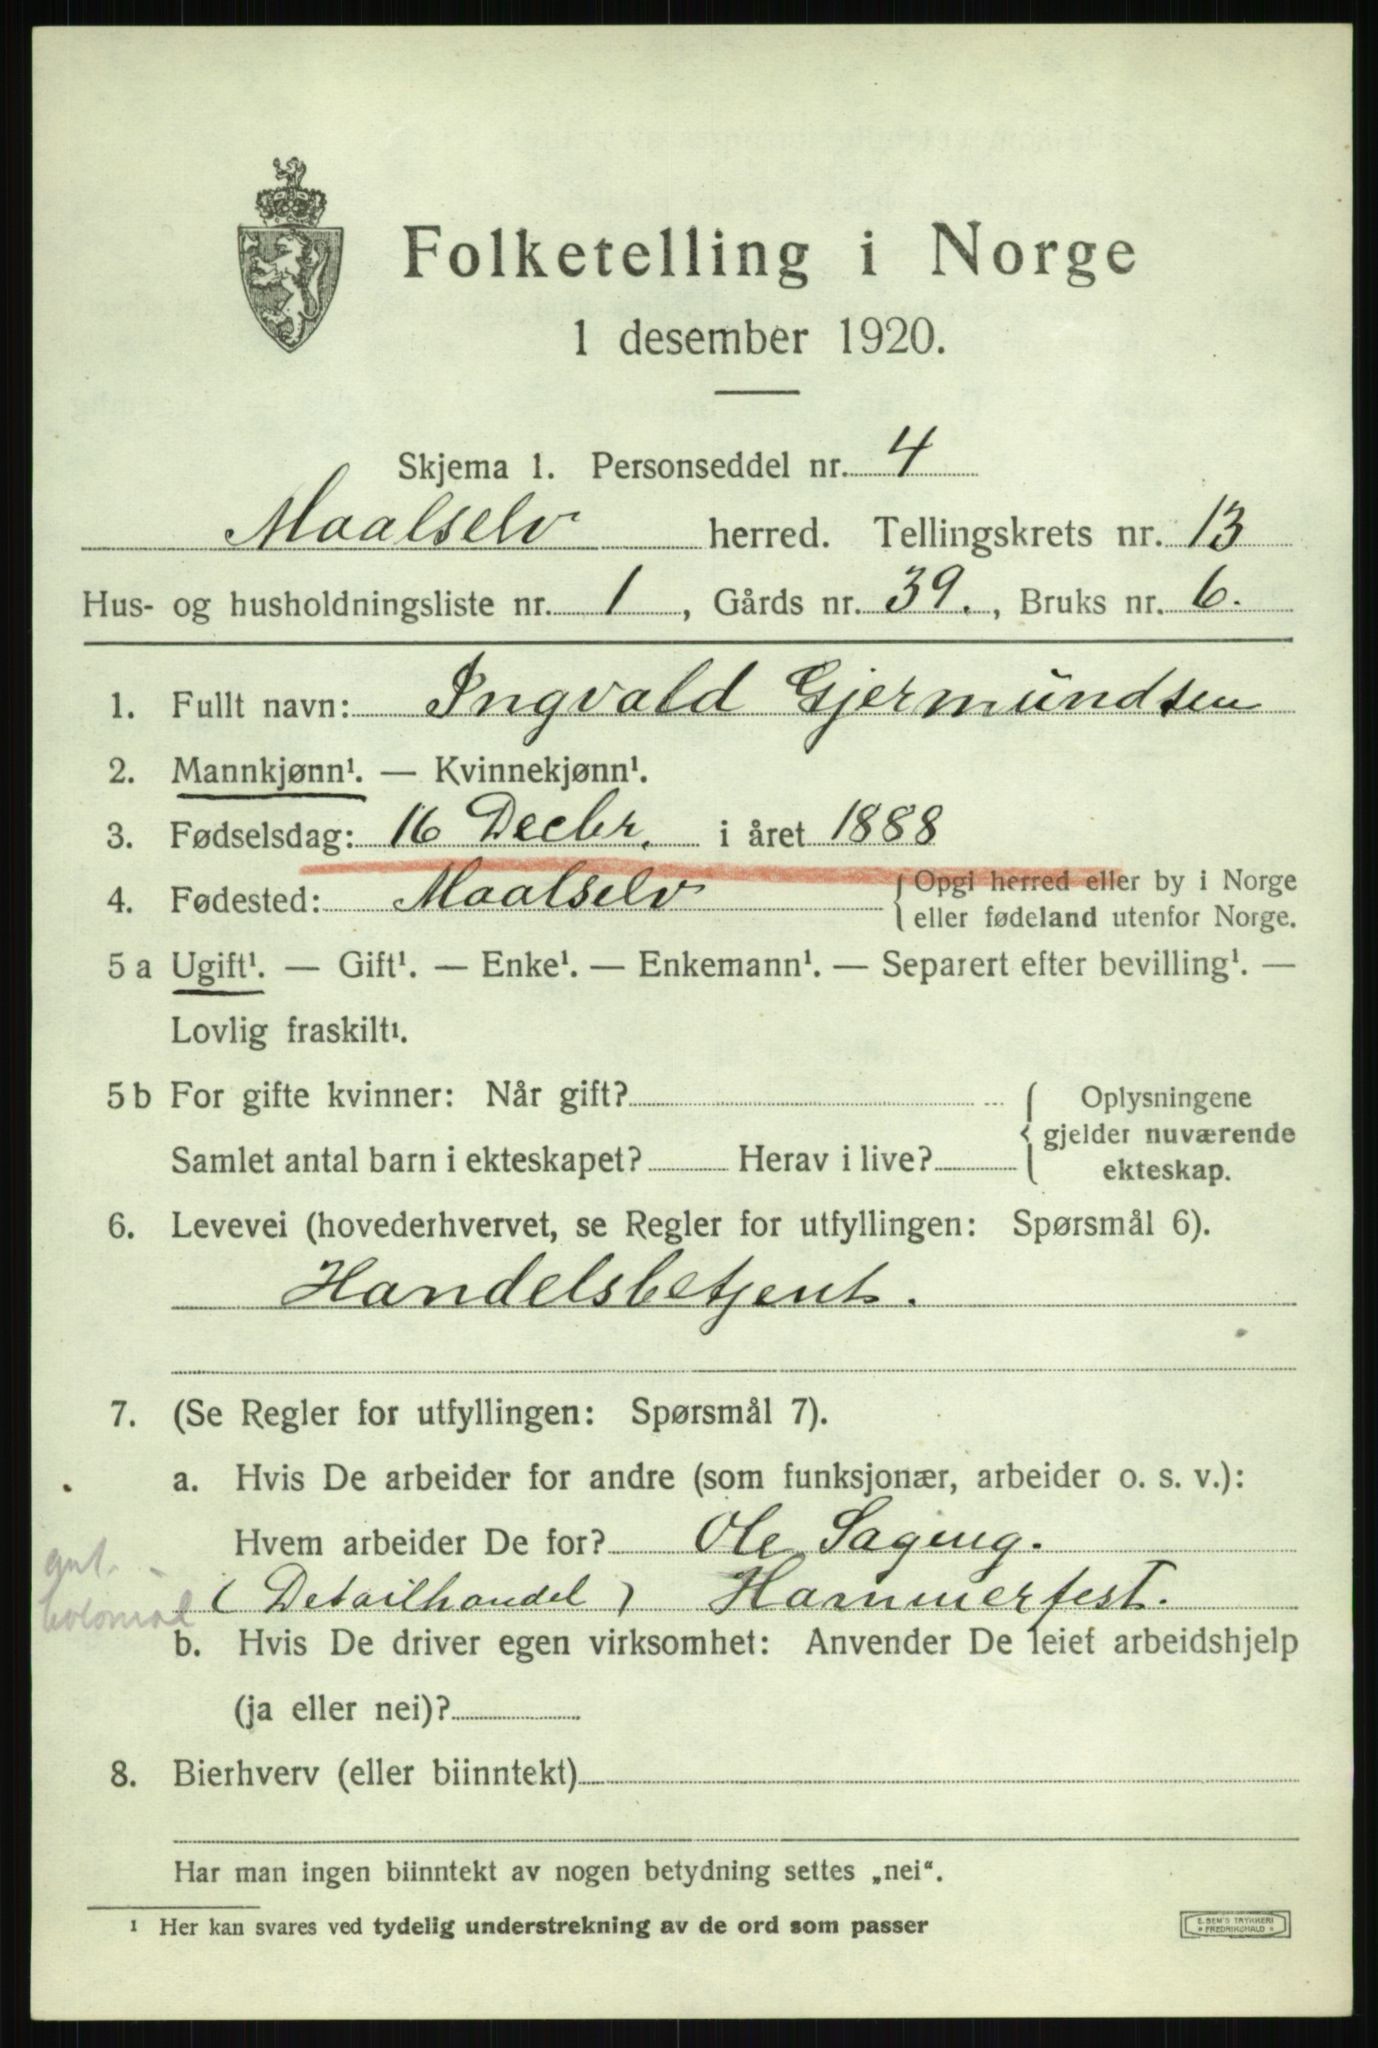 Folketelling i Norge
1 desember 1920.
Skjema 1. Personseddel nr. 4
Maalselv herred. Tellingskrets nr. 13
Hus- og husholdningsliste nr. 1, Gårds nr. 39., Bruks nr. 6.
1. Fullt navn: Ingvald Gjermundsen
2. Mannkjønn¹. — Kvinnekjønn¹.
3. Fødselsdag: 16 Decbr. i året 1888
4. Fødested: Maalselv { Opgi herred eller by i Norge
eller fødeland utenfor Norge.
5 a Ugift¹. — Gift¹. — Enke¹. — Enkemann¹. — Separert efter bevilling¹. —
Lovlig fraskilt¹.
5 b For gifte kvinner: Når gift? { Oplysningene
gjelder nuværende
Samlet antal barn i ekteskapet? Herav i live? ekteskap.
6. Levevei (hovederhvervet, se Regler for utfyllingen: Spørsmål 6).
Handelsbetjent.
7. (Se Regler for utfyllingen: Spørsmål 7).
a. Hvis De arbeider for andre (som funksjonær, arbeider o. s. v.):
Hvem arbeider De for? Ole
(Detailhandel) Hammerfest.
kolonial
b. Hvis De driver egen virksomhet: Anvender De leiet arbeidshjelp
(ja eller nei)?
8. Bierhverv (eller biinntekt)
Har man ingen biinntekt av nogen betydning settes „nei“.
¹ Her kan svares ved tydelig understrekning av de ord som passer
E. SEM'S TRYKKERI
* FREDRIKSHALD *